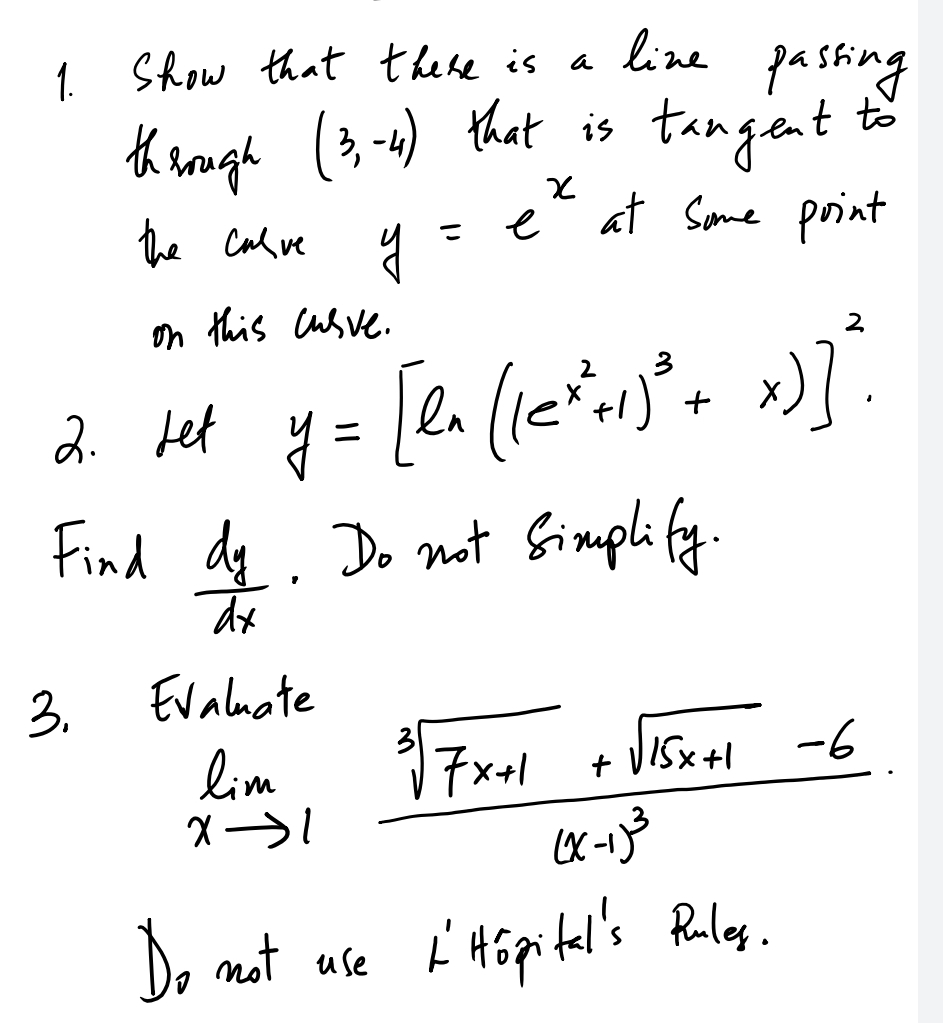 1. Show that there is a line passing
through (3,-4) that is tangent to
the curve y = e^x at some point
on this curve.
2. Let y = [ln ((e^{x^2}+1)^3 + x)]^2.
Find dy/dx. Do not simplify.
3. Evaluate
lim x→1 (∛(7x+1) + √(15x+1) -6)/(x-1)^3.
Do not use L'Hôpital's Rules.